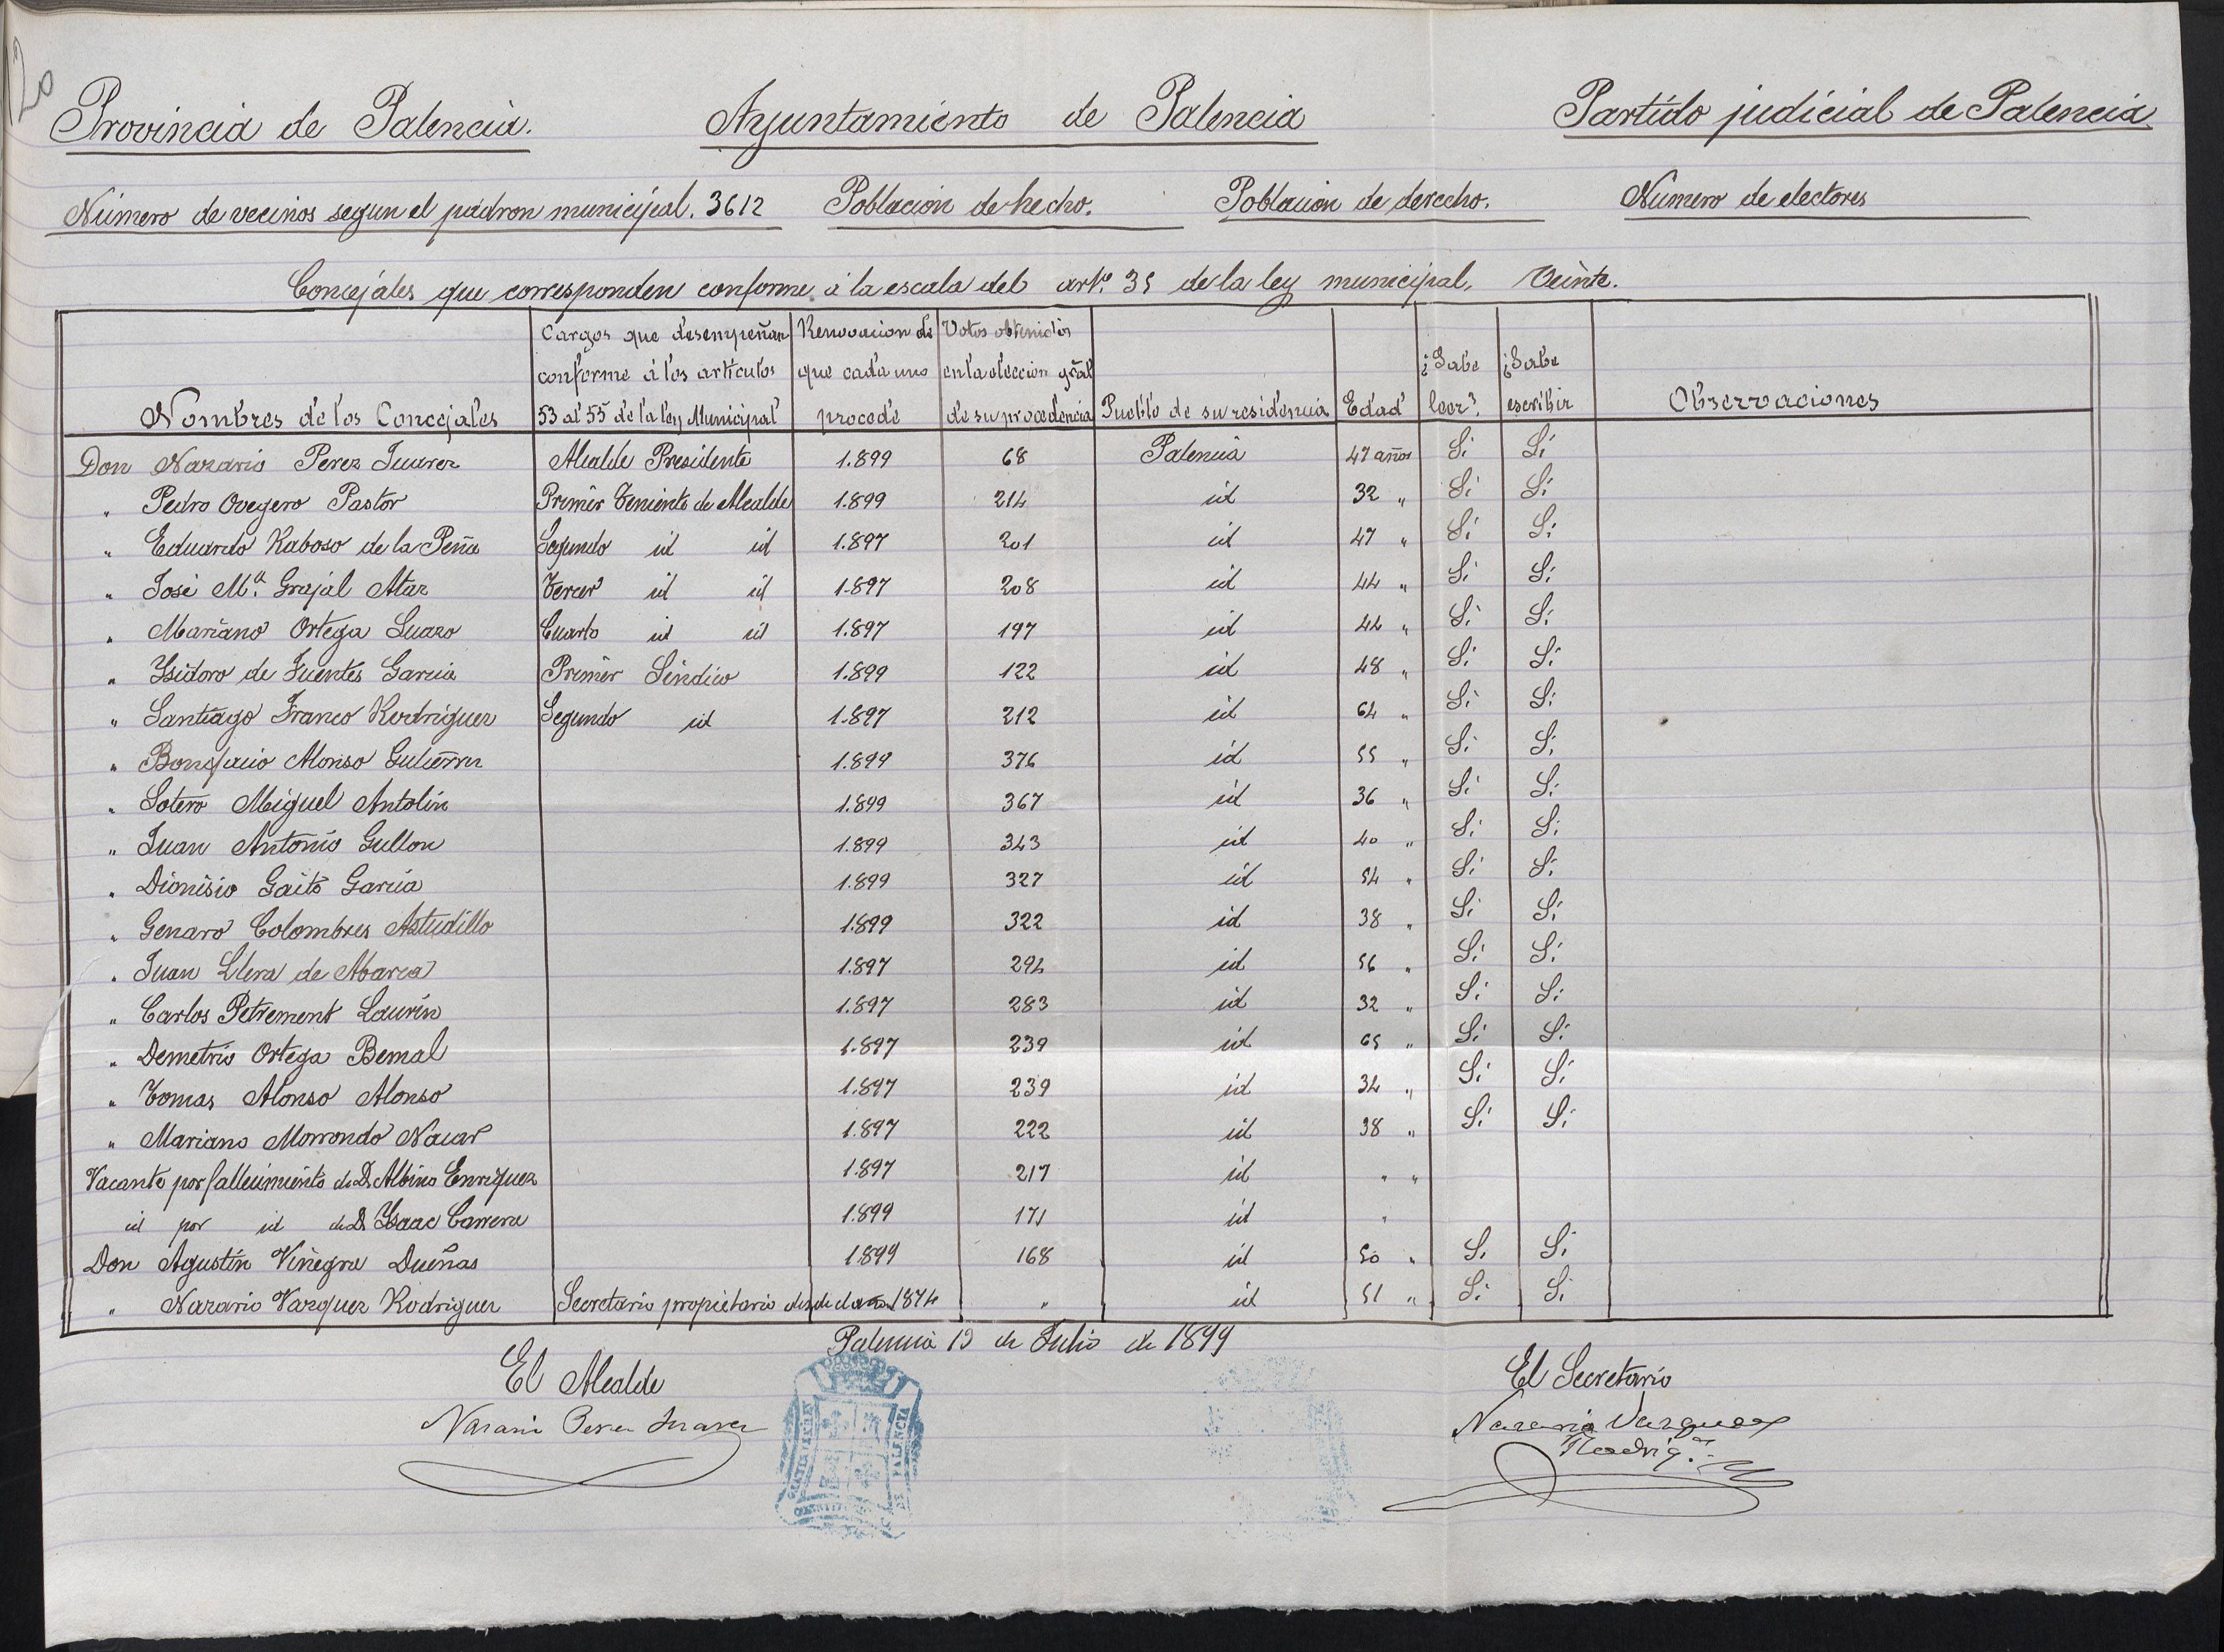 20
Provincia de Palencia. Ayuntamiento de Palencia Partido judicial de Palencia
Número de vecinos segun el padron municipal. 3612 Poblacion de hecho. Poblacion de derecho. Número de electores
Concejáles que corresponden conforme á la escala del artº 35 de la ley municipal, Veinte.
Nombres de los Concejales Cargos que desempeñan conforme á los artículos 53 al 55 de la ley Municipal Renovacion de que cada uno procede Votos obtenidos en la eleccion gñal de su procedencia Pueblo de su residencia Edad ¿Sabe leer? ¿Sabe escribir Observaciones
Don Nazario Perez Juarez Alcalde Presidente 1.899 68 Palencia 47 años Si Si
" Pedro Ovegero Pastor Primer Teniente de Alcalde 1.899 214 id 32 " Si Si
" Eduardo Raboso de la Peña Segundo id id 1.897 201 id 47 " Si Si
" José Mª Grajal Ataz Tercer id id 1.897 208 id 44 " Si Si
" Mariano Ortega Luazo Cuarto id id 1.897 197 id 44 " Si Si
" Ysidoro de Fuentes Garcia Primer Síndico 1.899 122 id 48 " Si Si
" Santiago Franco Rodriguez Segundo id 1.897 212 id 64 " Si Si
" Bonifacio Alonso Gutierrez 1.899 376 id 55 " Si Si
" Sotero Miguel Antolin 1.899 367 id 36 " Si Si
" Juan Antonio Gullon 1.899 343 id 40 " Si Si
" Dionisio Gaitó Garcia 1.899 327 id 54 " Si Si
" Genaro Colombres Astudillo 1.899 322 id 38 " Si Si
" Juan Llera de Abarca 1.897 294 id 56 " Si Si
" Carlos Petrement Laurin 1.897 283 id 32 " Si Si
" Demetrio Ortega Bernal 1.897 239 id 65 " Si Si
" Tomas Alonso Alonso 1.897 239 id 34 " Si Si
" Mariano Morrondo Nacar 1.897 222 id 38 " Si Si
Vacante por fallecimiento de D. Albino Enriquez 1.897 217 id " "
id por id de D. Ysaac Carrera 1.899 171 id "
Don Agustín Viñegra Dueñas 1.899 168 id 50 " Si Si
" Nazario Vazquez Rodriguez Secretario propietario desde el año 1874 " id 51 " Si Si
Palencia 13 de Julio de 1899
El Alcalde
Nazario Perez Juarez
El Secretario
Nazario Vazquez
Rodrig.ez
DE PALENCIA